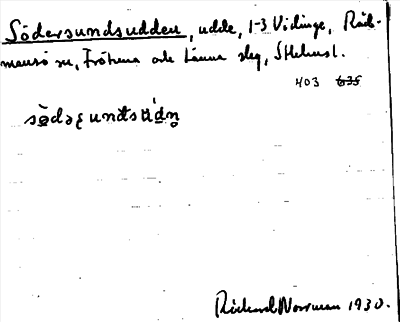 Södersundsudden, udde, 1-3 Vidinge, Råd-
mansö sn, Frötuna och Länna slg, Sthlms l.
403 635
södəʂunds̭ud̥n̥
Rickard Norrman 1930.